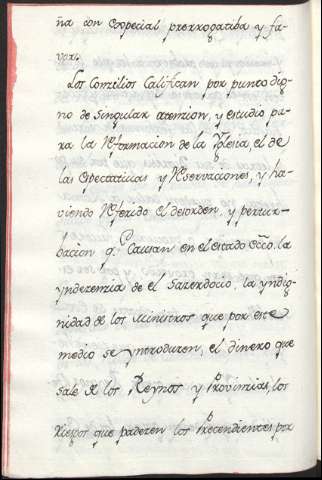 ña con especial prerrogatiba y fa-
vor.
Los Conzilios Califican por punto dig-
no de singular atenzion, y estudio pa-
ra la Reformacion de la Yglesia, el de
las Espectatiuas y Reservaciones, y ha-
viendo Referido el desorden, y pertur-
bacion q.e Causan en el estado Ecco. la
yndezenzia de el Sazerdocio, la yndig-
nidad de los Ministros que por este
medio se yntroduzen, el dinero que
sale de los Reynos y Provinzias, los
riesgos que padezen los Pretendientes por